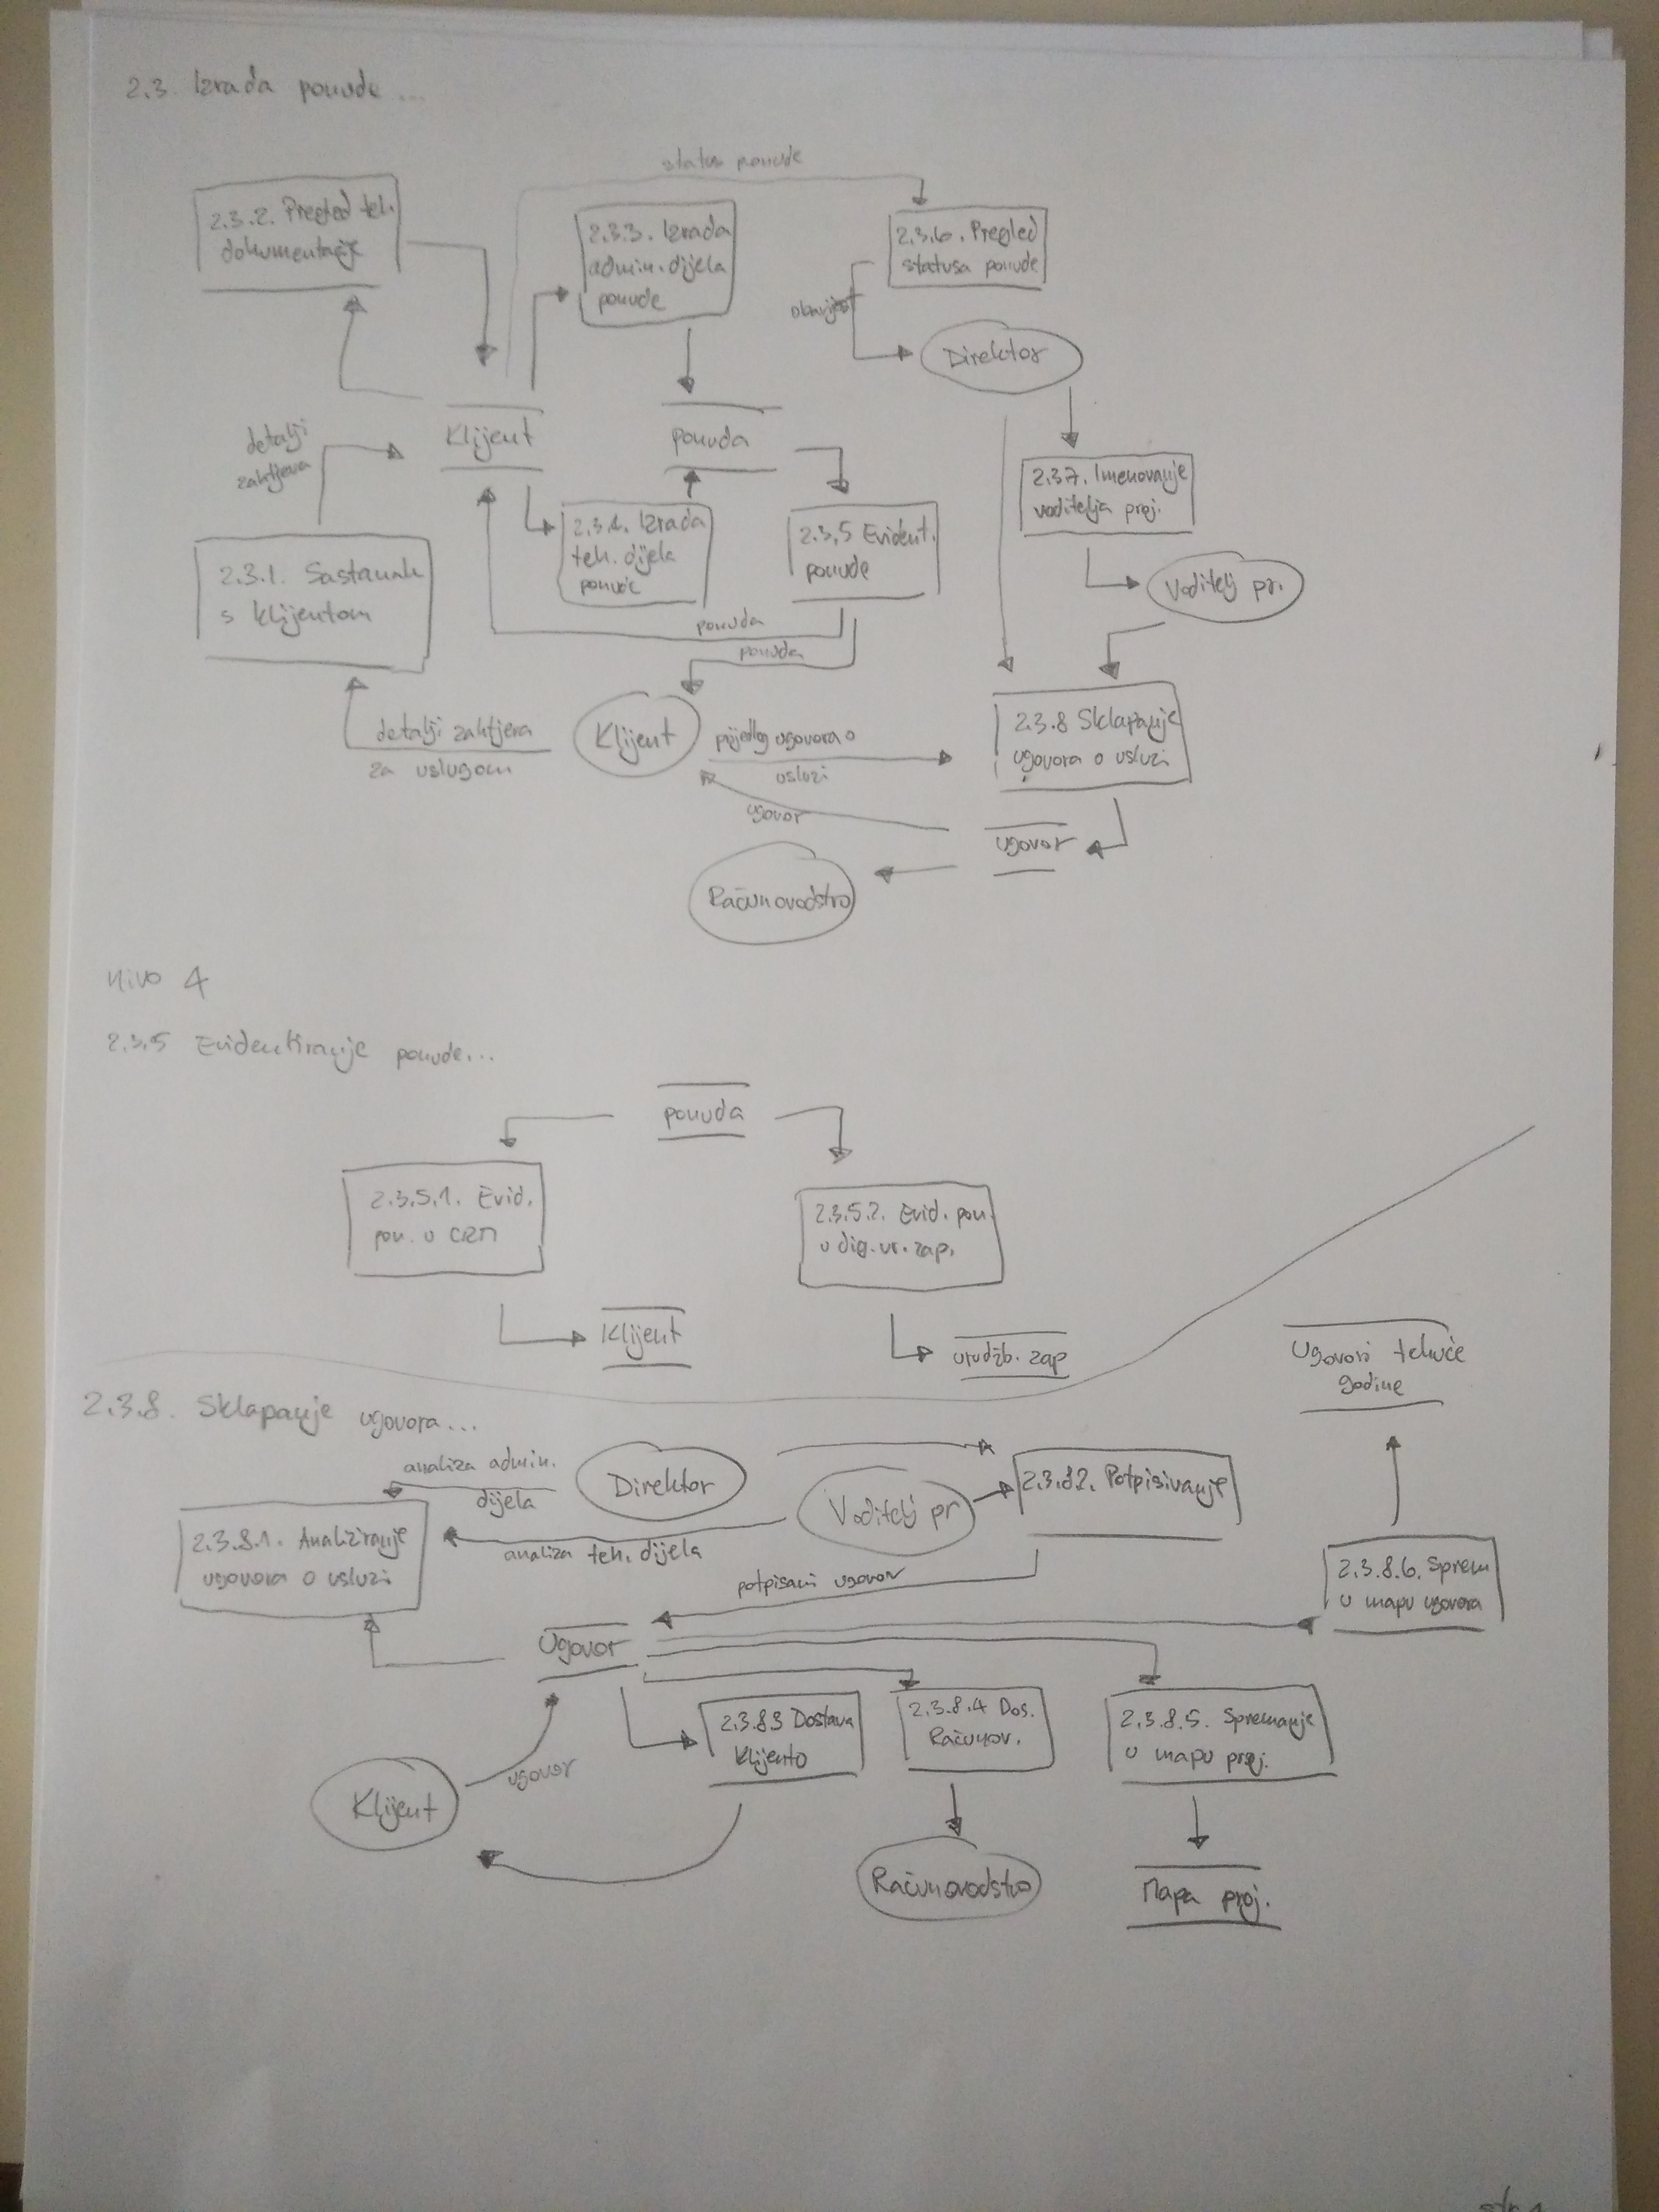 2.3. Izrada ponude ...
status ponude
2.3.2. Pregled teh.
dokumentacije
2.3.3. Izrada
admin. dijela
ponude
2.3.6. Pregled
statusa ponude
obavijest
Direktor
detalji
zahtjeva
Klijent
ponuda
2.3.7. Imenovanje
voditelja proj.
2.3.1. Sastanak
s klijentom
2.3.4. Izrada
teh. dijela
ponude
2.3.5 Evident.
ponude
Voditelj pr.
ponuda
ponuda
detalji zahtjeva
za uslugom
Klijent
prijedlog ugovora o
usluzi
2.3.8 Sklapanje
ugovora o usluzi
ugovor
ugovor
Računovodstvo
nivo 4
2.3.5 Evidentiranje ponude...
ponuda
2.3.5.1. Evid.
pon. u CRM
2.3.5.2. Evid. pon.
u dig. ur. zap.
Klijent
urudžb. zap
Ugovori tekuće
godine
2.3.8. Sklapanje ugovora...
analiza admin.
dijela
Direktor
Voditelj pr
2.3.8.2. Potpisivanje
2.3.8.1. Analiziranje
ugovora o usluzi
analiza teh. dijela
potpisani ugovor
2.3.8.6. Sprem
u mapu ugovora
Ugovor
2.3.8.3 Dostava
Klijentu
2.3.8.4 Dos.
Računov.
2.3.8.5. Spremanje
u mapu proj.
ugovor
Klijent
Računovodstvo
Mapa proj.